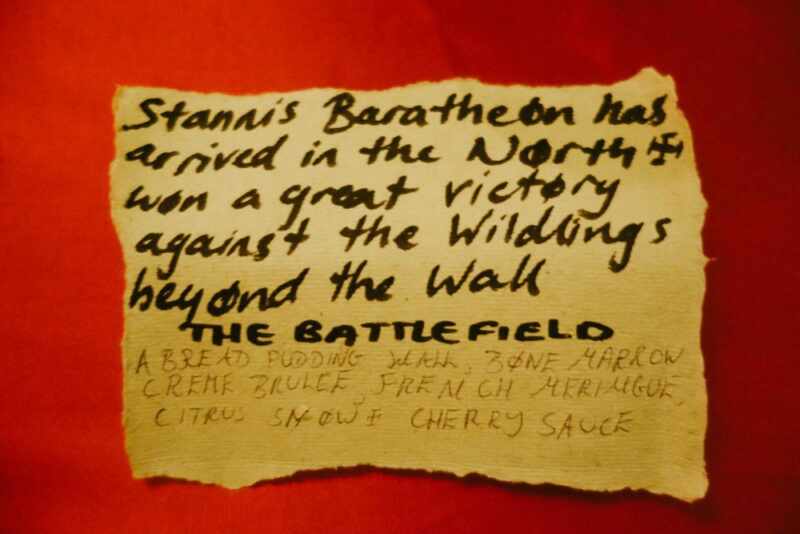 Stannis Baratheøn has
arrived in the Nørth &
wøn a great victøry
against the Wildlings
beyønd the Wall
THE BATTLEFIELD
A BREAD PUDDING WALL, BØNE MARROW
CREME BRULEE, FRENCH MERINGUE,
CITRUS SNØW & CHERRY SAUCE